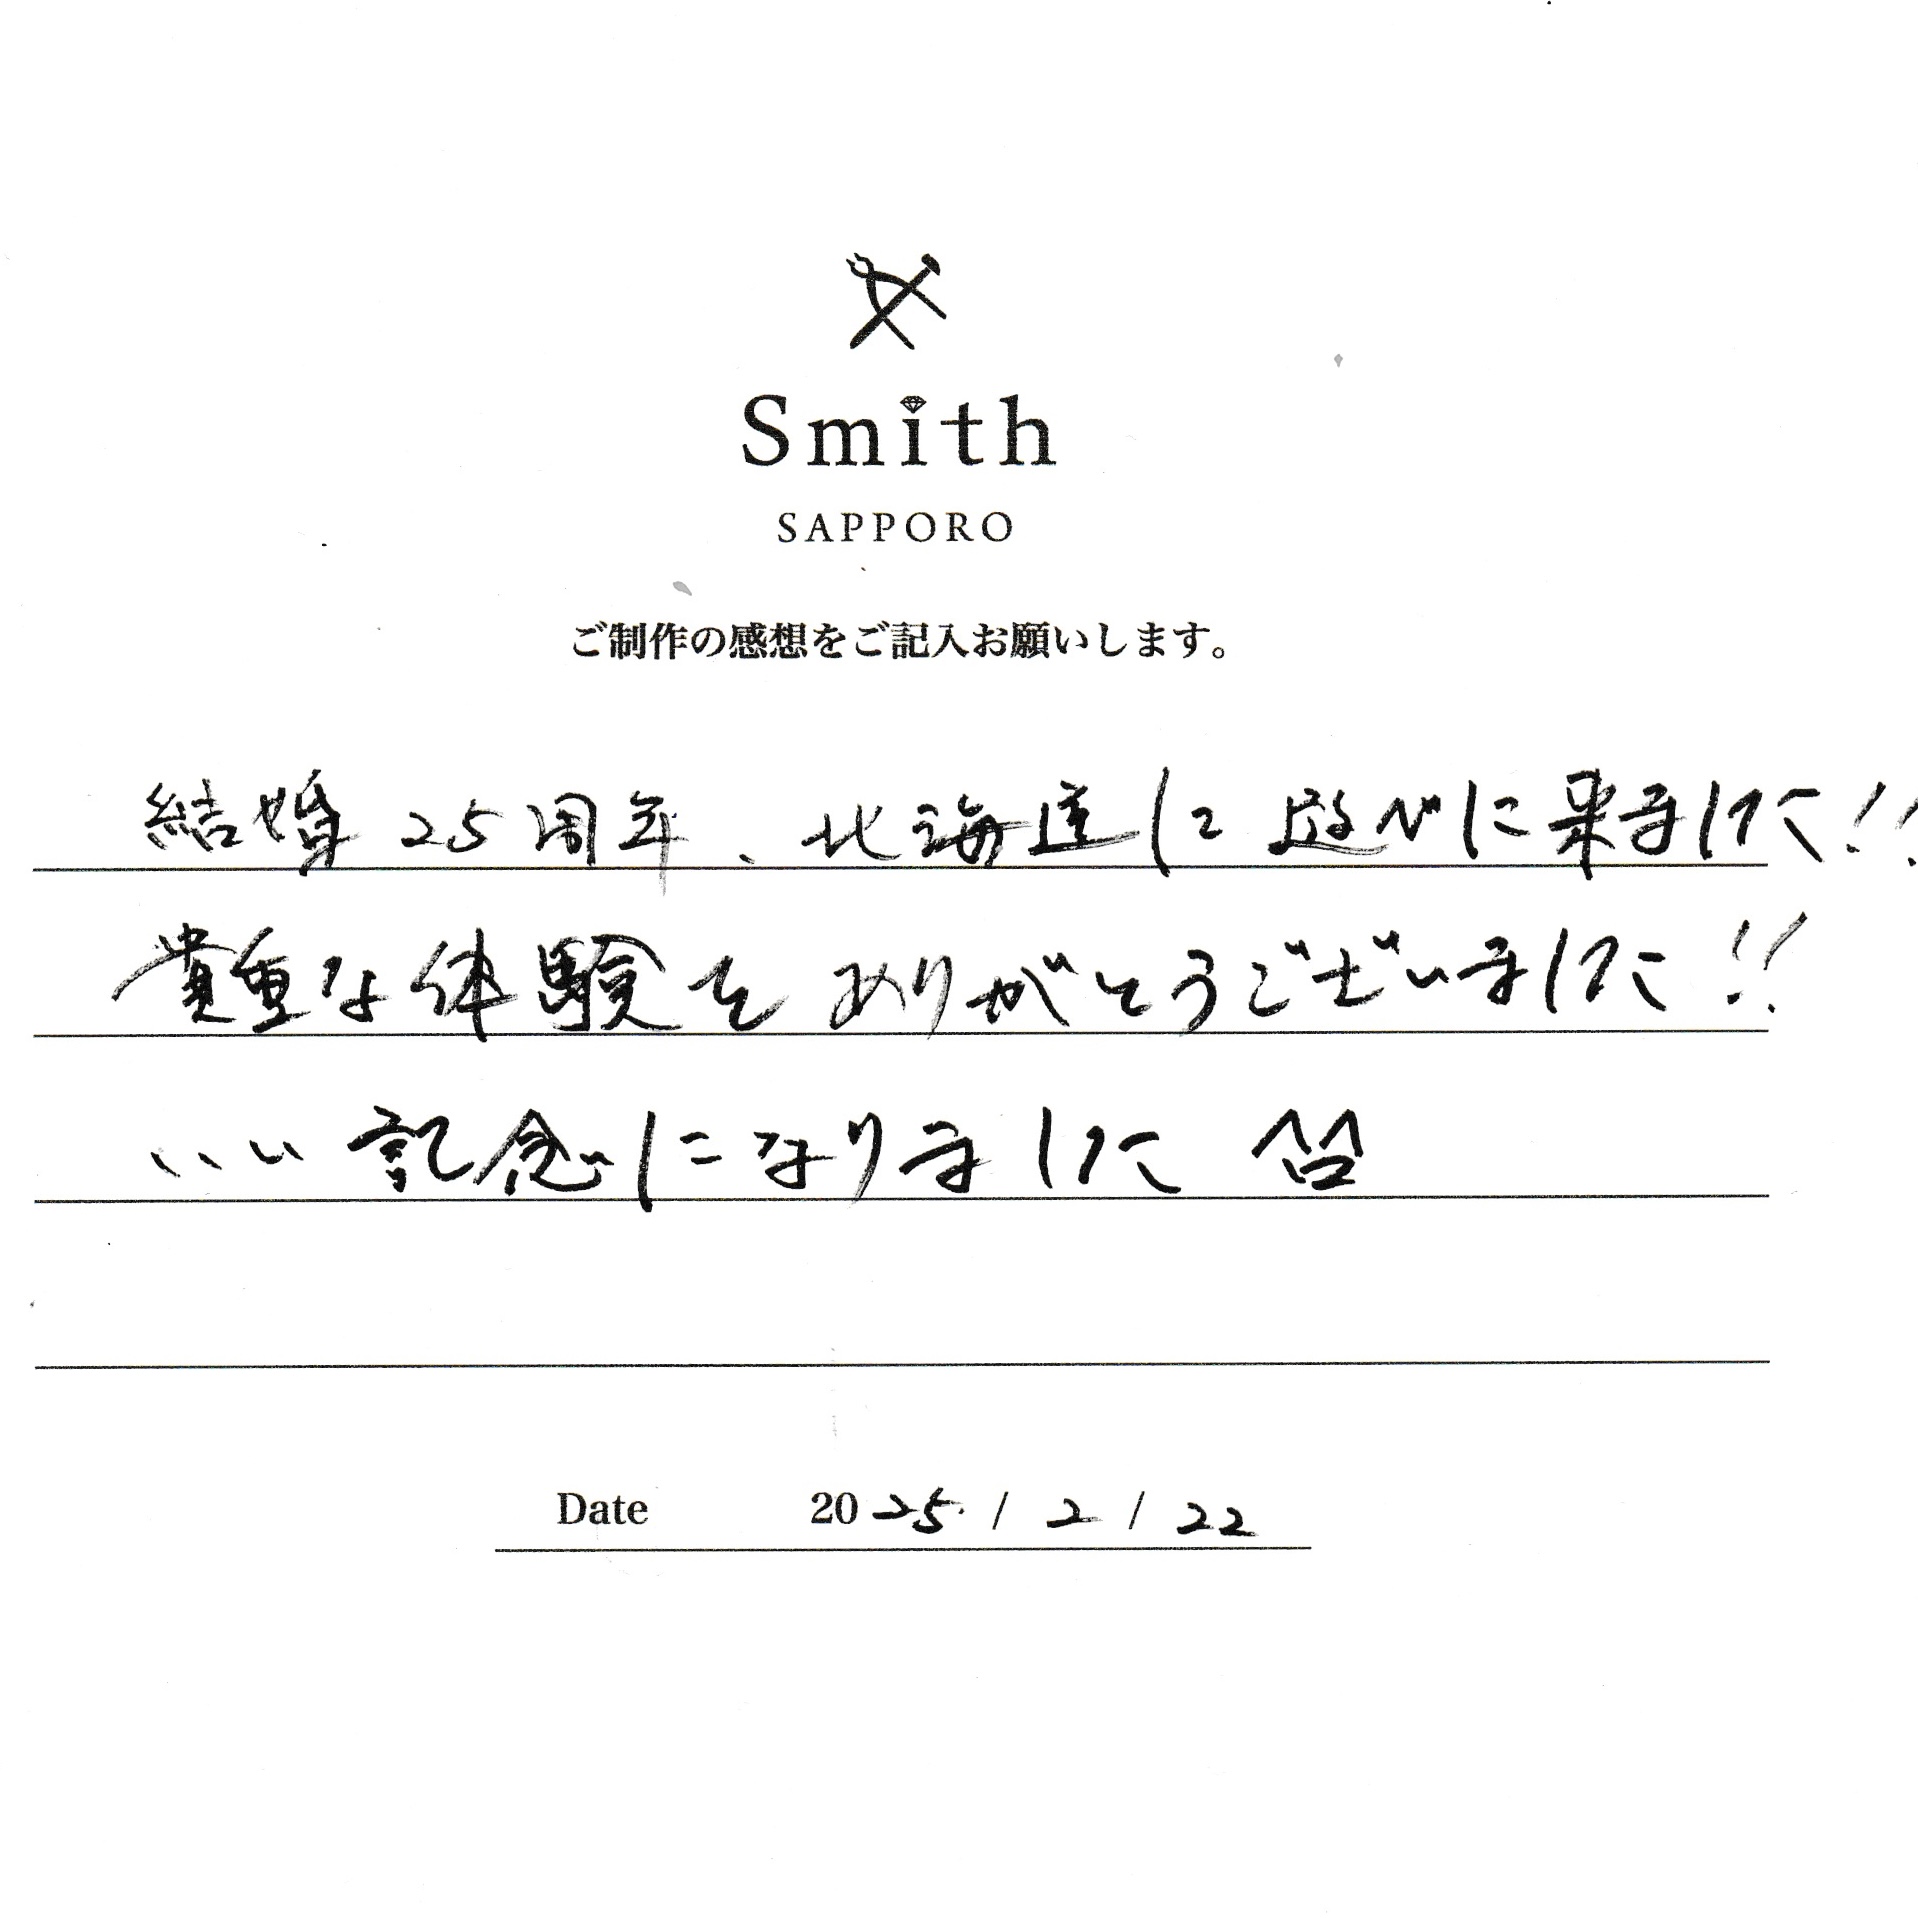 Smith
SAPPORO
ご制作の感想をご記入お願いします。
結婚25周年、北海道に遊びに来ました!!
貴重な体験をありがとうございました!!
いい記念になりました ^^
Date 2025/2/22